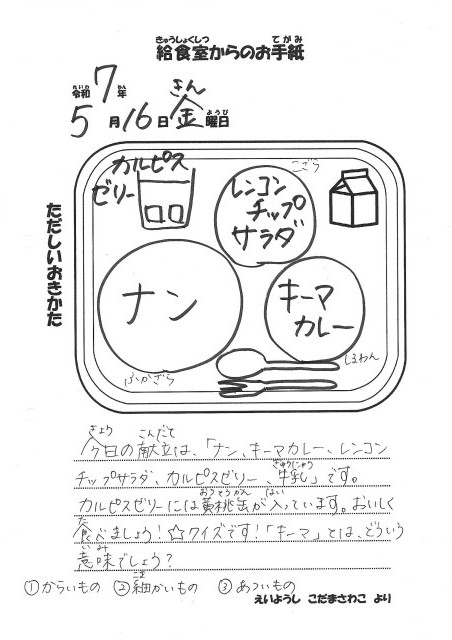 きゅうしょくしつ てがみ
給食室からのお手紙
れいわ ねん きん
令和7年
ようび
5月16日金曜日
ただしいおきかた
カルピス
ゼリー
こざら
レンコン
チップ
サラダ
ナン
ふかざら
キーマ
カレー
しるわん
きょう こんだて
今日の献立は、「ナン、キーマカレー、レンコン
ぎゅうにゅう
チップサラダ、カルピスゼリー、牛乳」です。
おうとうかん はい
カルピスゼリーには黄桃缶が入っています。おいしく
た
食べましょう!☆クイズです!「キーマ」とは、どういう
いみ
意味でしょう?
こま
①からいもの ②細かいもの ③あついもの
えいようし こだまさわこ より